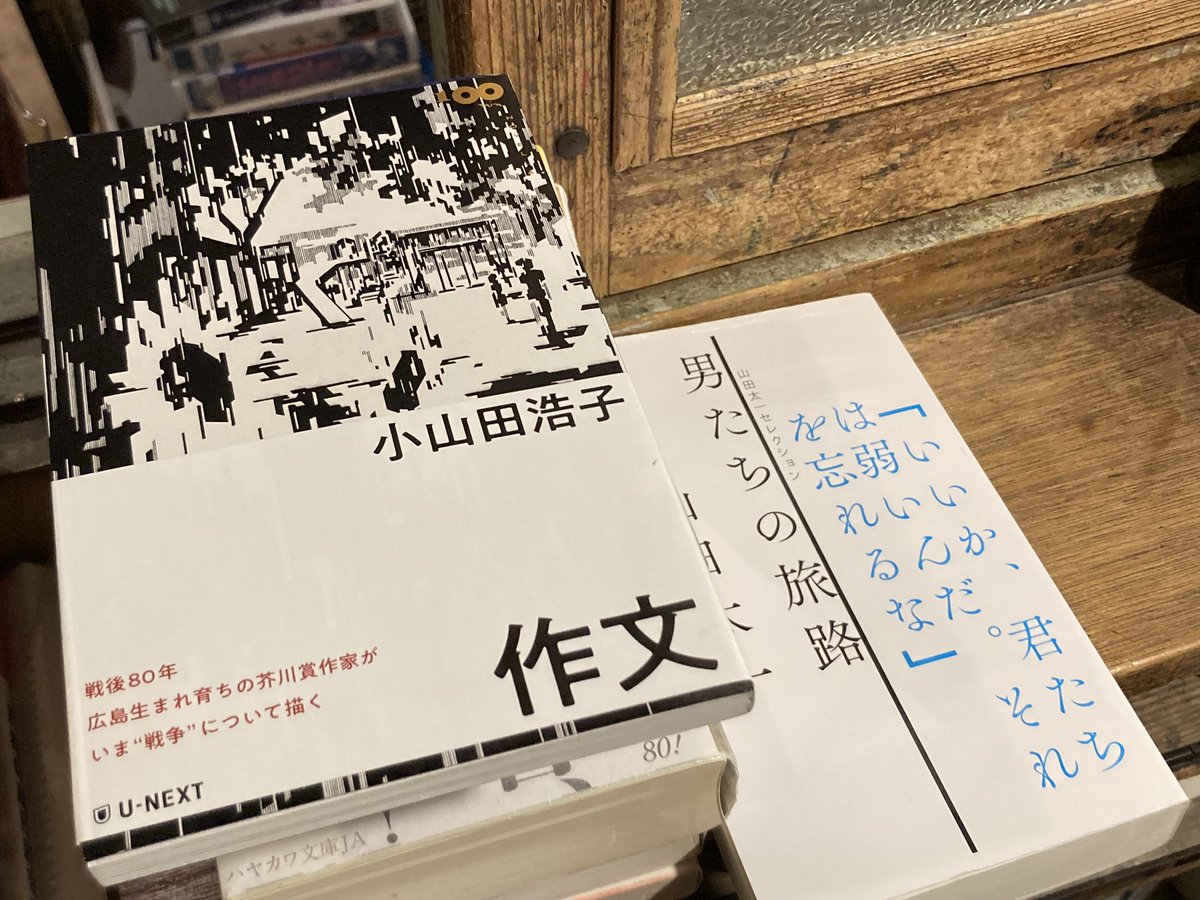 100
小山田浩子
作文
戦後80年
広島生まれ育ちの芥川賞作家が
いま“戦争”について描く
U-NEXT
「いいか、君たち
は弱いんだ。それ
を忘れるな」
山田太一セレクション
男たちの旅路
山田太一
80!
ハヤカワ文庫JA